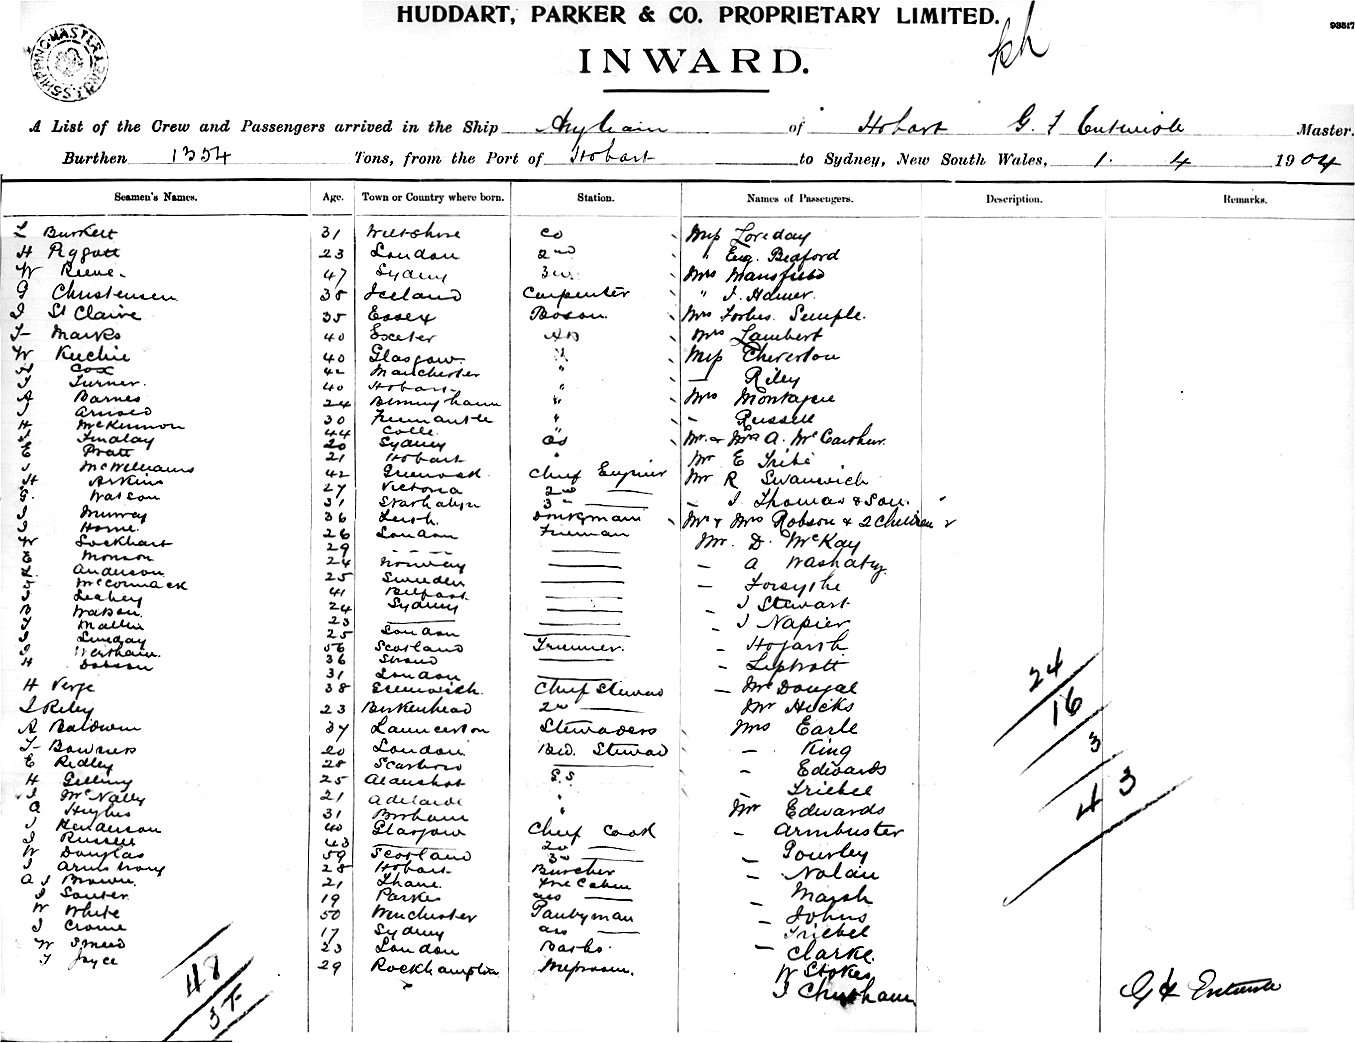 HUDDART, PARKER & CO. PROPRIETARY LIMITED.
93517
INWARD.
A List of the Crew and Passengers arrived in the Ship of Hobart G. F Entwisle Master.
Burthen 1354 Tons, from the Port of Hobart to Sydney, New South Wales, 1. 4 1904
Seamen's Names. Age. Town or Country where born. Station. Names of Passengers. Description. Remarks.
L Burkett 31 Wiltshire CO Miss Loveday
H Piggott 23 London 2nd " Eug. Bedford
W Reeve. 47 Sydney 3rd Mrs Mansfield
Christensen 38 Iceland Carpenter " J. Hamer.
St Claire 35 Essex Boson. Mrs Forbes Semple.
Marks 40 Exeter AB Mrs Lambert
W 40 Glasgow " Miss Cheverton
H Cox 42 Manchester " — Riley
J Turner. 40 Hobart " Mrs Montague
A Barnes 24 Birmingham " — Russell
J Arnold 30 Fremantle " Mr & Mrs A. McCarthur.
H McKinnon 44 Colle "
J Findlay 20 Sydney OS Mr E Tribe
E Pratt 21 Hobart " Mr R Swanwick
J McWilliams 42 Greenock Chief Engineer — J Thomas & Son.
H Arkins 27 Victoria 2nd — Mr & Mrs Robson & 2 Children
G. Watson 31 Strathalyn 3rd —
J Murray 36 Leith Donkeyman Mr. D. McKay
J Horne. 26 London Fireman — A Washaby
W Lockhart 29 — — — — — Forsythe
E Monson 24 Norway — — J Stewart
Anderson 25 Sweden — — J Napier
McCormack 41 Belfast — — Hogarth
J Leahey 24 Sydney —
B Watson 23 — —
Mallin 25 London —
J Lindsay 56 Scotland Trimmer. — McDougal
J Wertham. 36 Strand — Mr Hicks
H Dobson 31 London — Mrs Earle
H Verge 38 Greenwich Chief Steward — King
J Riley 23 Birkenhead 2nd — — Edwards
A Baldwin 37 Launceston Stewardess — Triebel
Bowness 20 London Bed. Steward Mr Edwards
E Ridley 28 Scarboro — — Armbuster
H Gilling 25 Aldershot G.S — Gourley
J McNally 21 Adelaide " — Nolan
A Hughes 31 Burham " Marsh
J Henderson 40 Glasgow Chief Cook — Johns
J Russell 43 — 2nd — — Triebel
W Douglas 59 Scotland 3rd — — Clarke.
J Armstrong 28 Hobart Butcher W Stokes
A J Brown. 21 Fore Cabin J Chapham
J Souter. 19 Parkes ass —
W White 50 Winchester Pantryman
J Crome 17 Sydney ass —
W 23 London Barbs.
T Joyce 29 Rockhampton Messroom.
24
16
3
43
48
G F Entwisle